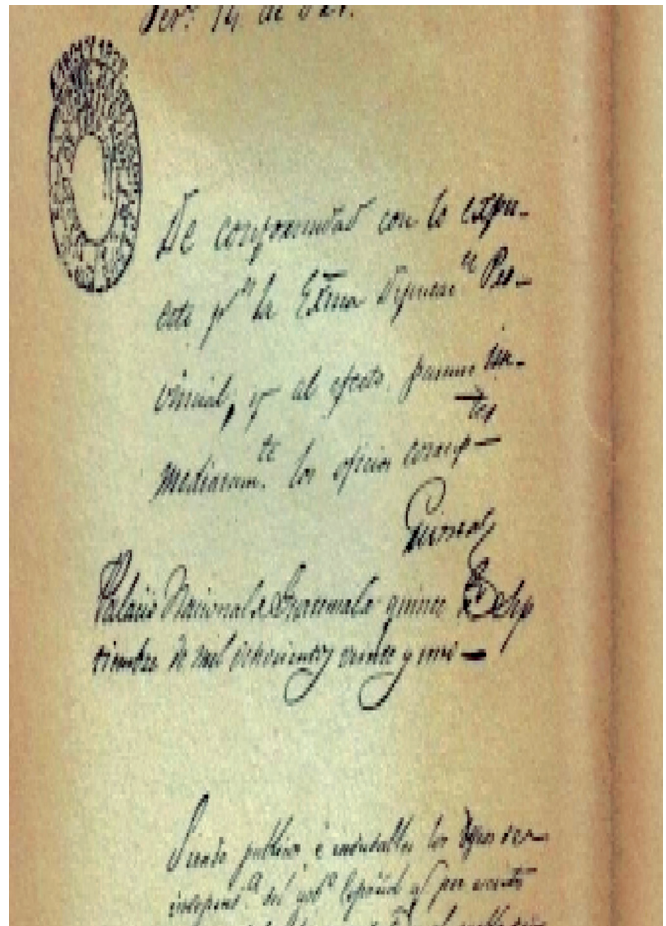 14 de 821.
De conformidad con lo expu-
esto pr la Exma Diputacn Pro-
vincial, y al efecto pasense in-
mediatamte los oficios corresp tes
Palacio Nacional de Guatemala quince de Sep
tiembre de mil ochocientos veinte y uno —
Siendo publicos é indudables los deseos de
independa del gobo Español q por escrito